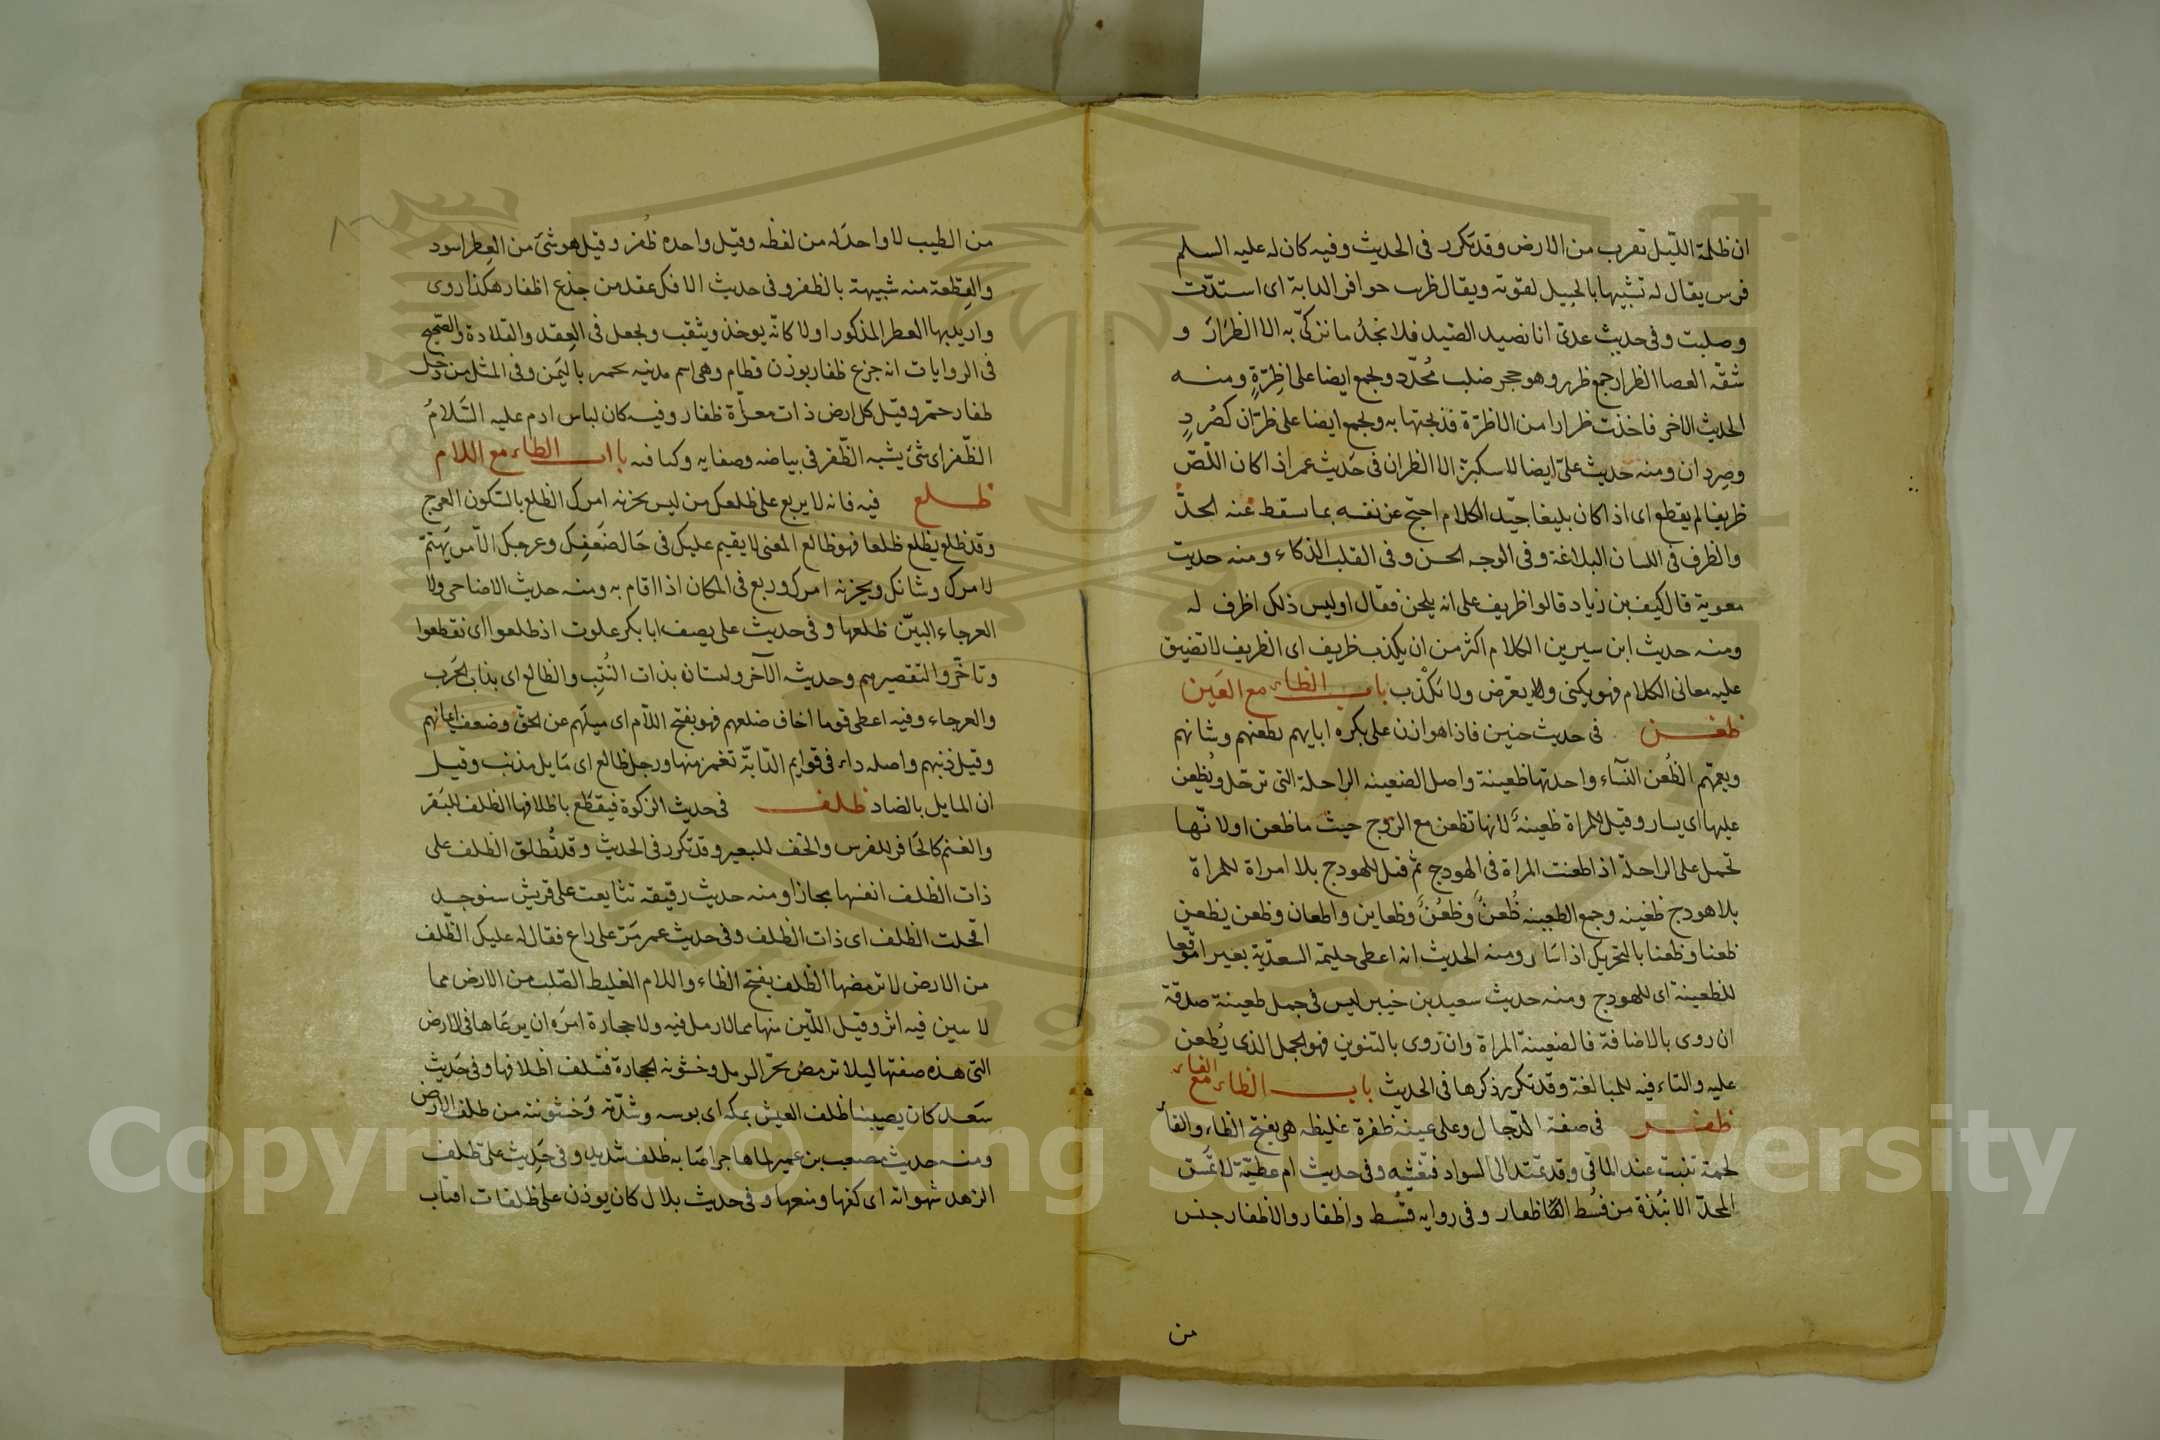 ان ظلمة الليل تقرب من الارض وقد تكرر فى الحديث وفيه كان له عليه السلم
فرس يقال له تشبيها بالجبيل لقوته ويقال ظربت حوافر الدابة اى استدّت
وصلبت وفى حديث عدى انا نصيد الصيد فلا نجدُ ما نزكّى به الا الظرارَ و
شقّه العصا الظرار جمع ظرر وهو حجر صلب مُحدّد ويجمع ايضا على اظِرّةٍ ومنه
الحديث الاخر فاخذت ظرارا من الاظرّة فذبحتها به ويجمع ايضا على ظرّان كصُردٍ
وصِردان ومنه حديث علىّ ايضا لا سكين الا الظران فى حَديث عمر اذا كان اللصّ
ظريفا لم يقطع اى اذا كان بليغا جيّد الكلام احتج عن نفسه بما سقط عنه الحدّ
والظرف فى اللسان البلاغة وفى الوجه الحسن وفى القلب الذكاء ومنه حديث
معوية قال كيف بن زياد قالوا ظريف على انه يلحن فقال اوليس ذلك اظرف له
ومنه حديث ابن سيرين الكلام اكثر من ان يكذب ظريف اى الظريف لا تضيق
عليه معانى الكلام فهو يكنى ولا يعرّض ولا يَكْذب باب الظاء مع العَين
ظعن فى حديث حنين فاذا هوازن على بكره ابايهم بظعنهم وشانهم
ونعمهّم الظُعن النسآء واحدتها ظعينة واصل الضعينه الراحلة التى ترحّل ويُظعن
عليها اى يسار وقيل للمراة ظعينهً لانها تظعن مع الزوج حيث ما ظعن اولا نّها
تحمل على الراحلة اذا ظعنت المراة فى الهودج ثم قيل للهودج بلا امراة للمراة
بلا هودج ظعينه وجمع الظعينه ظُعنٌ وظعُنٌ وظعاين واظعان وظعن يظعن
ظعنا وظعنا بالتحريك اذا سَار ومنه الحديث انه اعطى حليمة السعدّية بعيرا موقعا
للظعينة اى للهودج ومنه حديث سعيد بن خيبر ليس فى جمل ظعينة صدقة
ان روى بالاضافة فالضعينة المراة وان رَوى بالتنوين فهو الجمل الذى يُظعن
عليه والتاء فيه للمبالغة وقد تكرر ذكرها فى الحديث باب الظاء مع الفاء
ظفر فى صفة الدّجال وعلى عينه ظفرة غليظه هى بفتح الظاء والفاء
لحمة تنبت عند الماقى وقد تمتد الى السواد فتغشّيه وفى حديث ام عطيّة لا تمسّ
المحدّ الا نُبذة من قُسط اظفار وفى روايه قُسط واظفار والاظفار جنس
من
من الطيب لا واحدَله من لفظه وقيل واحده ظُفر وقيل هو شئَ من العِطر اسود
والقِطعة منه شبيهة بالظفر وفى حديث الافك عقد من جزع اظفار هكذا روى
واريد بها العطر المذكور اولا كانّه يوخذ ويثقب ويجعل فى العِقد والقلادة والصّحيح
فى الروايات انه جزع ظفار بوزن قطام وهى اسم مدينه لحمير باليَمن وفى المثل من دخل
ظفار حمّر وقيل كل ارض ذات مغرّة ظفار وفيه كان لباس ادم عليه السّلامُ
الظّفر اى شئ يشبه الظّفر فى بياضه وصفايه وكثافته باب الظاء مع اللام
ظلع فيه فانه لا يربع على ظلعك من ليس يحزنه امرك الظلع بالسكون العرج
وقد ظلع يظلع ظلعا فهو ظالع المعنى لا يقيم عليك فى حَال ضَعفِك وعرجك الّا من يَهتمّ
لامرك وشانك ويحزنه امرك وربع فى المكان اذا اقام به ومنه حديث الاضاحى ولا
العرجاء البيّن ظلعها وفى حديث على يصف ابا بكر علوت اذ ظلعوا اى نقطعوا
وتاخّروا لتقصيرهم وحديثه الآخر وليستان بذات النُقبِ والظالع اى بذات الجَرب
والعرجاء وفيه اعطى قوما اخاف ضلعهم فهو بفتح اللّام اى ميلَهم عن الحقّ وضعف ايمانهم
وقيل ذنبهم واصله داء فى قوايم الدّابّه تغمز منها ورجل ظالع اى مَايل مذنب وقيل
ان المايل بالضاد ظلف فى حديث الزكوة فيقطَع باظلافها الظلف للبَقر
والغنم كالحَافر للفرس والخف للبعير وقد تكرر فى الحديث وقد تُطلق الظلف على
ذات الظلف انفسَها مجازا ومنه حديث رقيقه تتابعت على قريش سنو جدب
اقحلت الظلف اى ذات الظلف وفى حديث عمر مَرّ على راعٍ فقال له عليك الظّلف
من الارض لا ترمضها الظّلف بفتح الظاء واللام الغليظ الصّلب من الارض مما
لا يبين فيه اثر وقيل اللّين منها مما لا رمل فيه ولا حجارة امرَه ان يرعَاها فى الارض
التى هذه صفتها ليلا ترمضُ بحرّ الرمل وخشونه الحجارة فتلف اظلافها وفى حَديث
سَعد كان يصيبنا ظلف العيش بمكه اى بوسه وشدّته وَخشونته من ظلف الارض
ومنه حديث مصعب بن عمير لما هاجر اصَابه ظلف شديد وفى حَدِيث على ظلف
الزهد شهواته اى كفها ومنعها وفى حديث بلال كان يوذن على ظلفات اقتاب
Copyright © King Saud University
1957